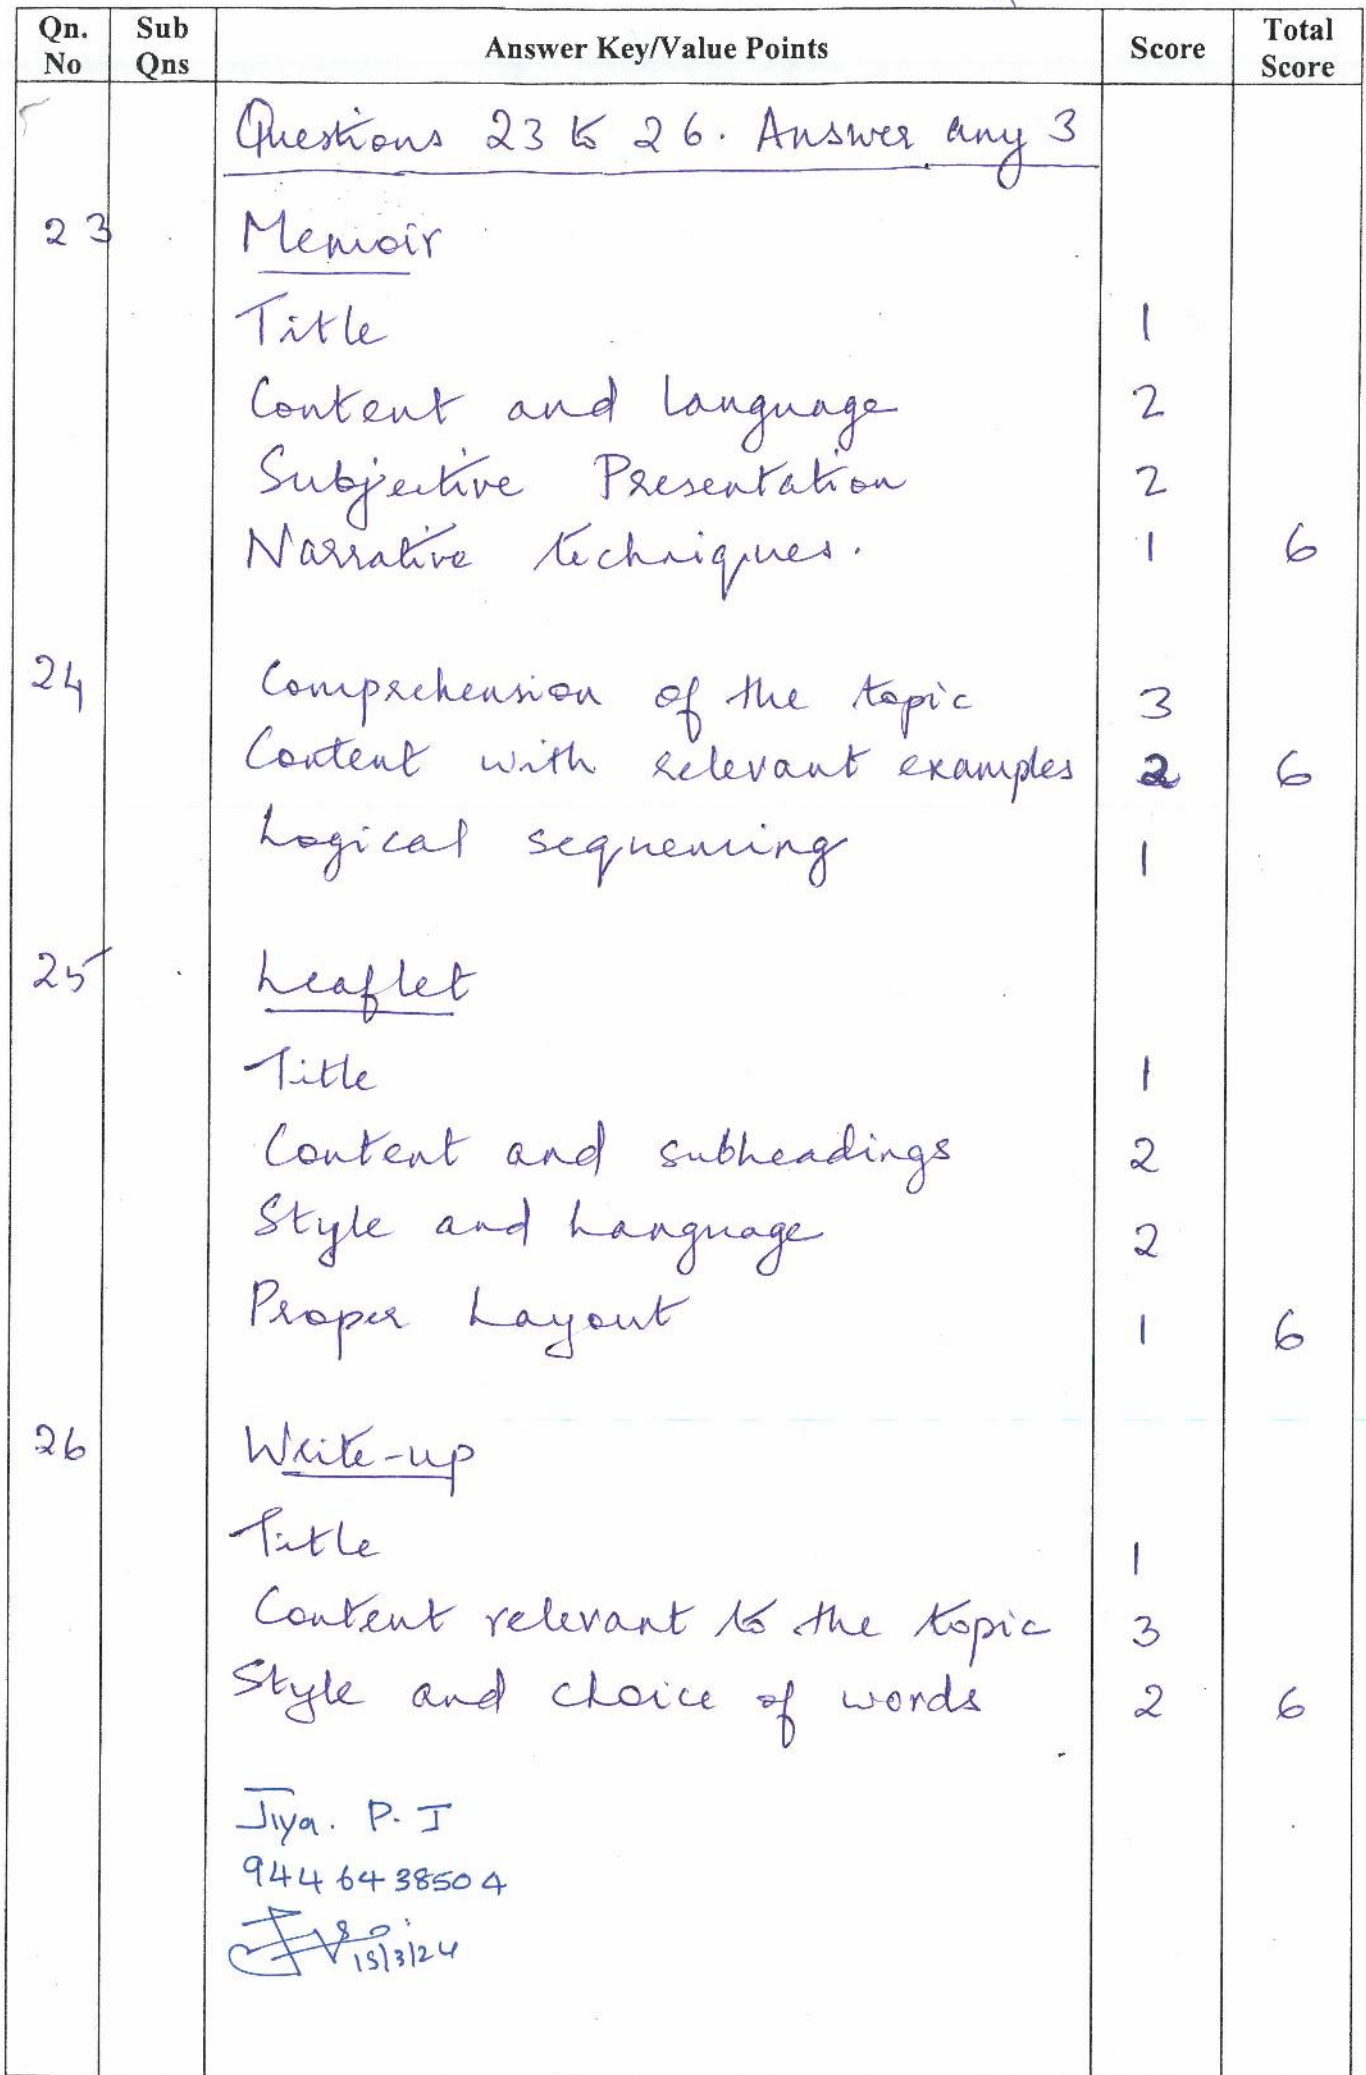 Qn. No Sub Qns Answer Key/Value Points Score Total Score
Questions 23 to 26. Answer any 3
23 Memoir
Title 1
Content and Language 2
Subjective Presentation 2
Narrative techniques. 1 6
24 Comprehension of the topic 3
Content with relevant examples 2 6
Logical sequencing 1
25 Leaflet
Title 1
Content and subheadings 2
Style and Language 2
Proper Layout 1 6
26 Write-up
Title 1
Content relevant to the topic 3
Style and choice of words 2 6
Jiya. P. J
9446438504
15/3/24